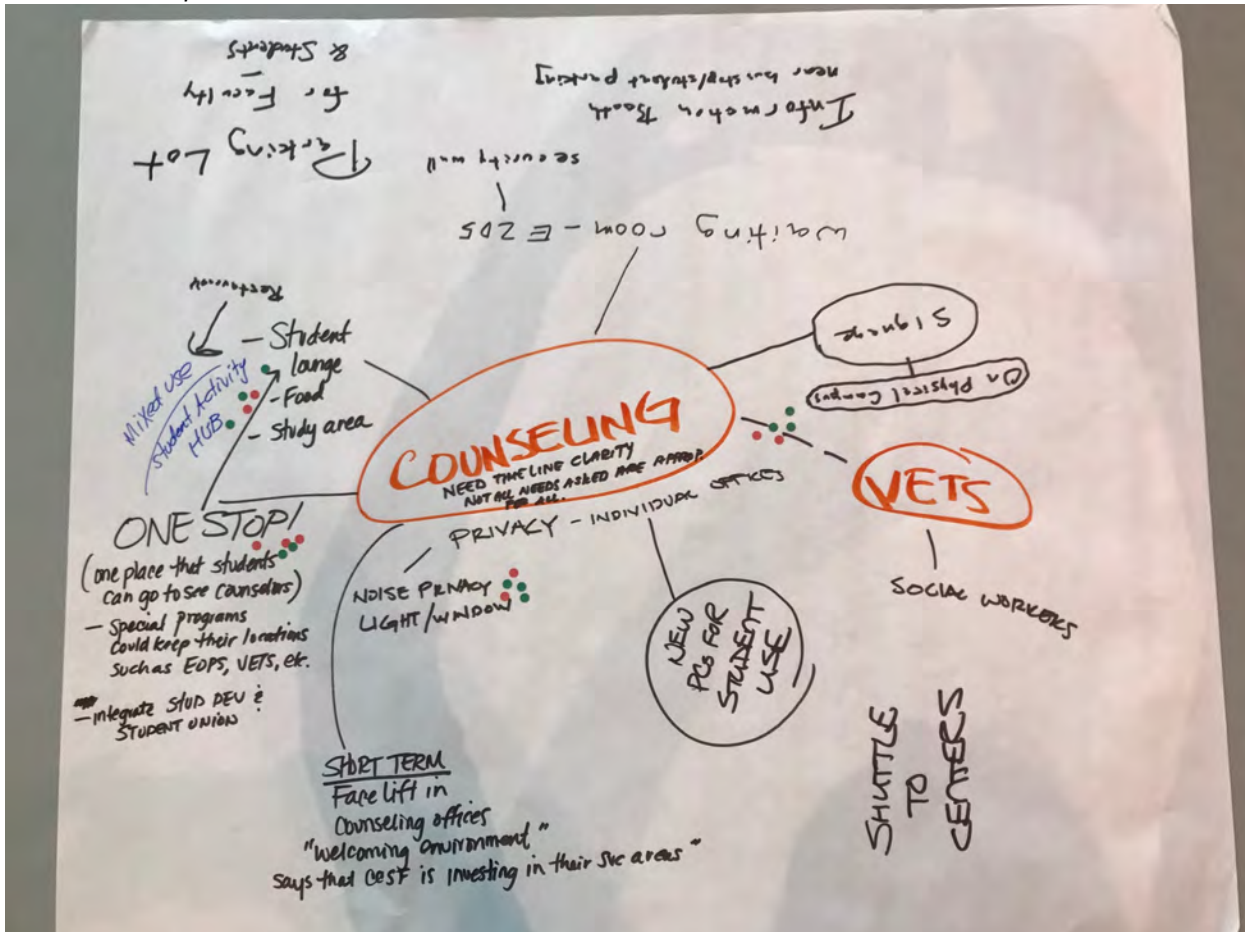 Parking Lot
for Faculty
& Students
Information Booth
near busstop/student parking
security wall
waiting room - E205
Restaurant
Mixed Use
Student Activity
HUB
- Student
lounge
- Food
- Study area
Signage
On Physical Campus
COUNSELING
NEED TIMELINE CLARITY
NOT ALL NEEDS ASKED ARE APPROP.
FOR ALL.
VETS
SOCIAL WORKERS
PRIVACY - INDIVIDUAL OFFICES
NOISE PRIVACY
LIGHT/WINDOW
NEW
PCs FOR
STUDENT
USE
ONE STOP!
(one place that students
can go to see counselors)
- Special programs
could keep their locations
such as EOPS, VETS, etc.
- integrate STUD DEV &
STUDENT UNION
SHORT TERM
Face lift in
Counseling offices
"Welcoming environment"
says that CCSF is investing in their svc areas"
SHUTTLE
TO